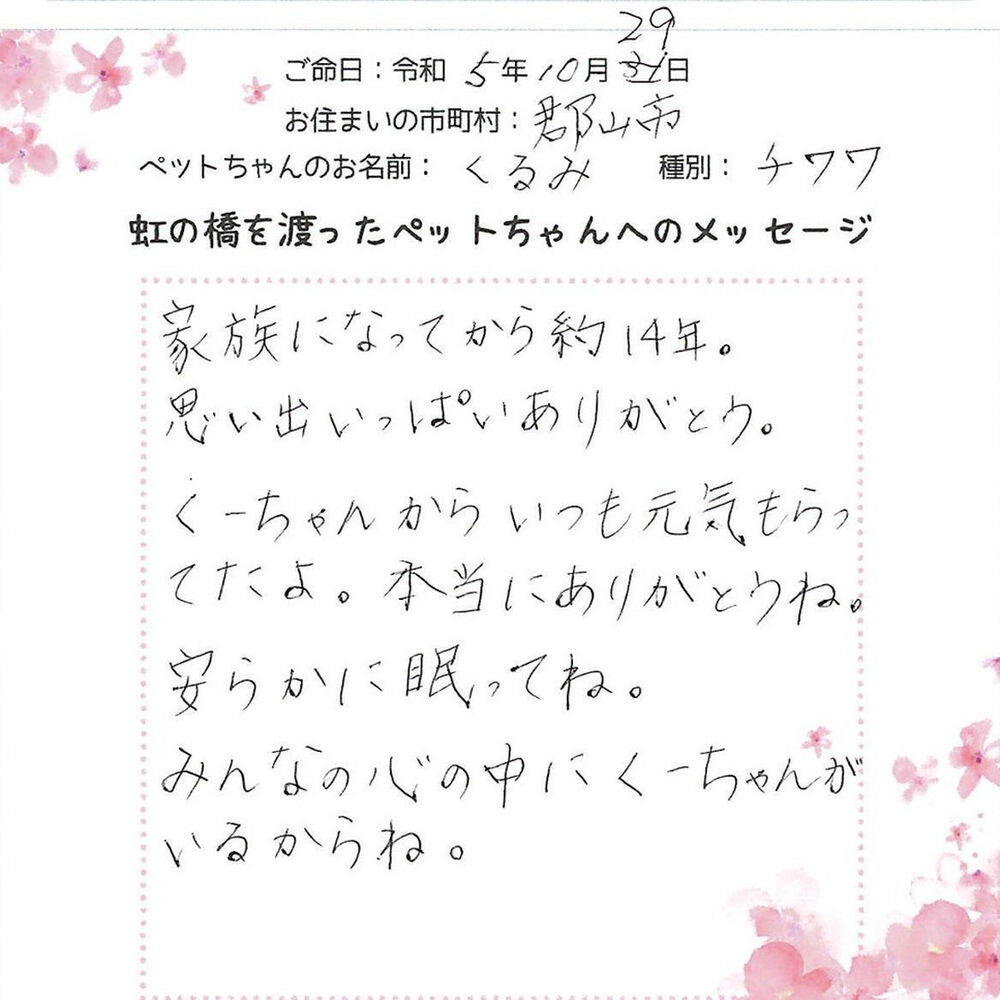 29
ご命日：令和 5年10月31日
お住まいの市町村：郡山市
ペットちゃんのお名前： くるみ 種別： チワワ
虹の橋を渡ったペットちゃんへのメッセージ
家族になってから約14年。
思い出いっぱいありがとう。
くーちゃんからいつも元気もらっ
てたよ。本当にありがとうね。
安らかに眠ってね。
みんなの心の中にくーちゃんが
いるからね。